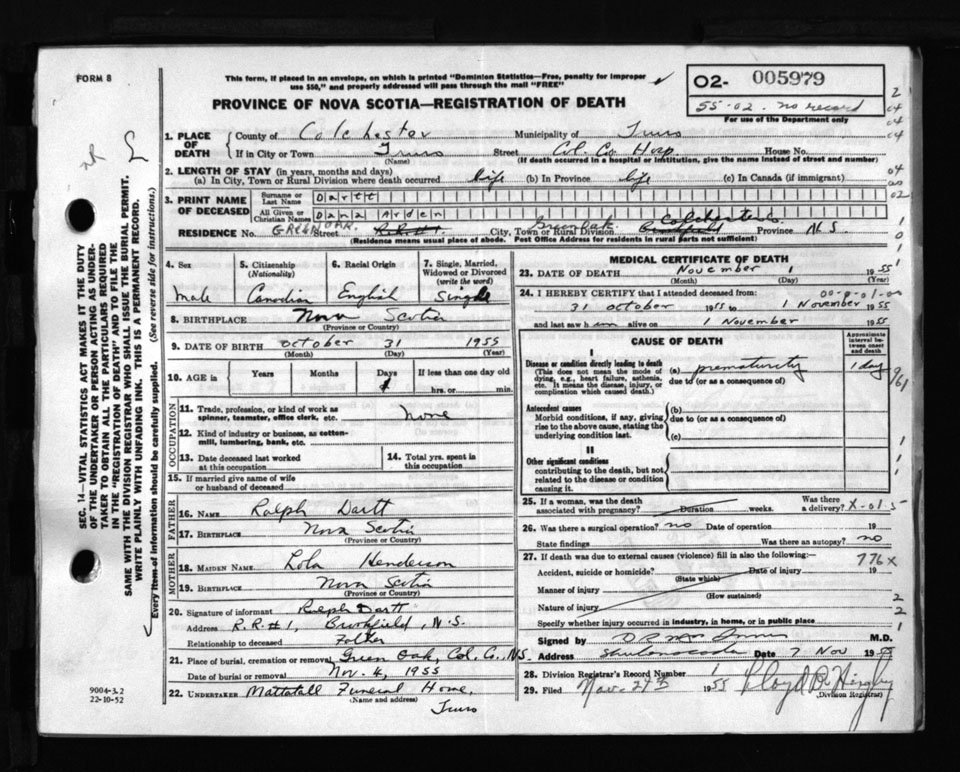 FORM 8
This form, if placed in an envelope, on which is printed "Dominion Statistics—Free, penalty for improper
use $50," and properly addressed will pass through the mail "FREE"
O2- 005979
55-02. no record
For use of the Department only
PROVINCE OF NOVA SCOTIA—REGISTRATION OF DEATH
1. PLACE OF DEATH
County of Colchester Municipality of Truro
If in City or Town Truro Street Col. Co. Hosp. House No.
(Name) (If death occurred in a hospital or institution, give the name instead of street and number)
2. LENGTH OF STAY (in years, months and days)
(a) In City, Town or Rural Division where death occurred life (b) In Province life (c) In Canada (if immigrant)
3. PRINT NAME OF DECEASED
Surname or Last Name Dartt
All Given or Christian Names Dana Arden
RESIDENCE No. Street R.R.#1. City, Town or Rural Division Green Oak Brookfield Colchester Co. Province N.S.
(Residence means usual place of abode. Post Office Address for residents in rural parts not sufficient)
4. Sex male
5. Citizenship (Nationality) Canadian
6. Racial Origin English
7. Single, Married, Widowed or Divorced (write the word) Single
8. BIRTHPLACE Nova Scotia
(Province or Country)
9. DATE OF BIRTH October 31 1955
(Month) (Day) (Year)
10. AGE in Years Months Days 1 If less than one day old
hrs. or min.
OCCUPATION
11. Trade, profession, or kind of work as spinner, teamster, office clerk, etc. None
12. Kind of industry or business, as cotton-mill, lumbering, bank, etc.
13. Date deceased last worked at this occupation
14. Total yrs. spent in this occupation
15. If married give name of wife or husband of deceased
FATHER
16. NAME Ralph Dartt
17. BIRTHPLACE Nova Scotia
(Province or Country)
MOTHER
18. MAIDEN NAME Lola Henderson
19. BIRTHPLACE Nova Scotia
(Province or Country)
20. Signature of informant Ralph Dartt
Address R.R.#1, Brookfield, N.S.
Relationship to deceased Father
21. Place of burial, cremation or removal Green Oak, Col. Co., N.S.
Date of burial or removal Nov. 4, 1955
22. UNDERTAKER Mattatall Funeral Home,
(Name and address)
Truro
MEDICAL CERTIFICATE OF DEATH
23. DATE OF DEATH November 1 1955
(Month) (Day) (Year)
24. I HEREBY CERTIFY that I attended deceased from:
31 October 1955 to 1 November 1955
and last saw him alive on 1 November 1955
CAUSE OF DEATH
Approximate interval between onset and death
I
Disease or condition directly leading to death (a) prematurity 1 day
(This does not mean the mode of dying, e.g., heart failure, asthenia, etc. It means the disease, injury, or complication which caused death.)
due to (or as a consequence of)
Antecedent causes (b)
Morbid conditions, if any, giving rise to the above cause, stating the underlying condition last.
due to (or as a consequence of)
(c)
II
Other significant conditions
contributing to the death, but not related to the disease or condition causing it.
25. If a woman, was the death associated with pregnancy? Duration weeks. Was there a delivery? X-01 5
26. Was there a surgical operation? no Date of operation 19
State findings Was there an autopsy? no
27. If death was due to external causes (violence) fill in also the following:— 776x
Accident, suicide or homicide? Date of injury 19
(State which)
Manner of injury
(How sustained)
Nature of injury
Specify whether injury occurred in industry, in home, or in public place
Signed by M.D.
Address Shubenacadie Date 7 Nov 1955
28. Division Registrar's Record Number
29. Filed Nov. 1955
Division Registrar)
SEC. 14—VITAL STATISTICS ACT MAKES IT THE DUTY
OF THE UNDERTAKER OR PERSON ACTING AS UNDER-
TAKER TO OBTAIN ALL THE PARTICULARS REQUIRED
IN THE "REGISTRATION OF DEATH" AND TO FILE THE
SAME WITH THE DIVISION REGISTRAR WHO SHALL ISSUE THE BURIAL PERMIT.
WRITE PLAINLY WITH UNFADING INK. THIS IS A PERMANENT RECORD.
Every item of information should be carefully supplied. (See reverse side for instructions.)
9004-3.2
22-10-52